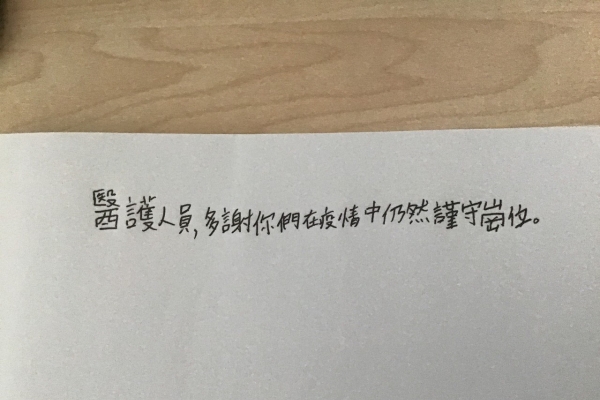 醫護人員,多謝你們在疫情中仍然謹守崗位。